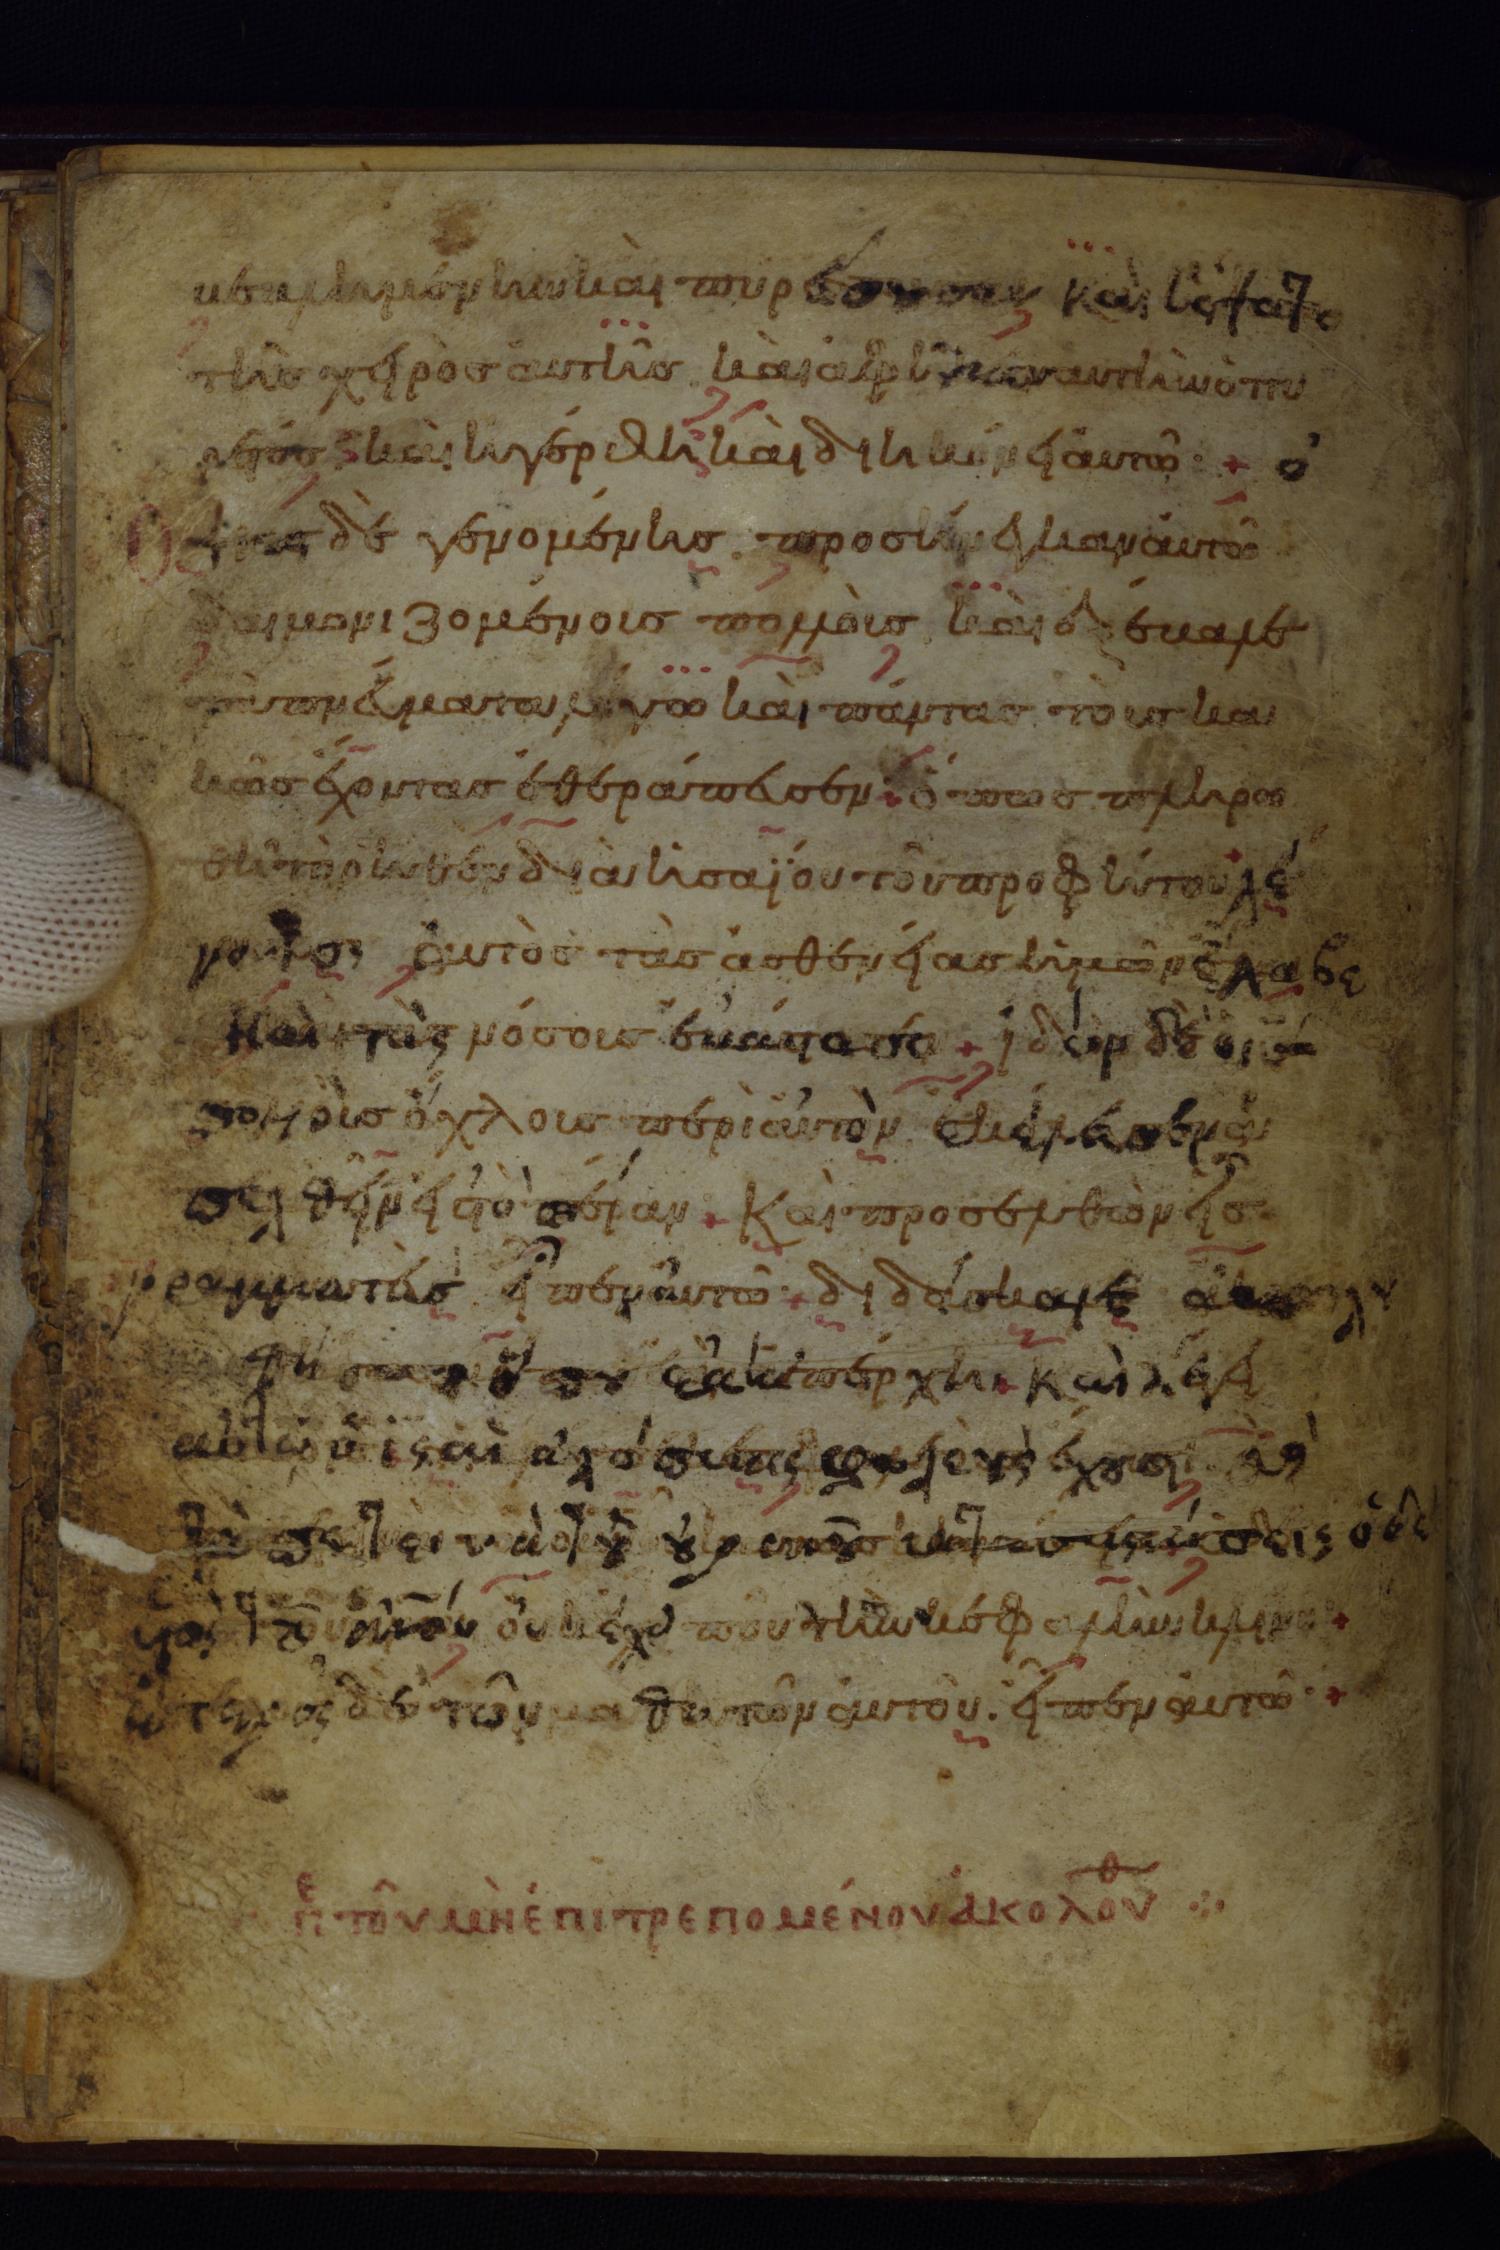 βεβλημένην και πυρέσσουσαν και ήψατο
της χειρὸς αυτῆς και αφῆκεν αυτὴν ὁ πυ
ρετός και ηγέρθη και διηκόνει αυτῶ + ο
ψιας δὲ γενομένης προσήνεγκαν αυτῶ
δαιμονιζομένους πολλοὺς και εξέβαλε
τὰ πνεύματα λόγω και πάντας τους κα
κῶς έχοντας εθεράπευσεν + όπως πληρω
θῆ τὸ ρηθέν διὰ ησαΐου τοῦ προφήτου λέ
γοντος αυτὸς τὰς ασθενείας ημῶν έλαβε
και τὰς νόσους εβάστασε + ιδὼν δὲ ο ις
πολλοὺς όχλους περὶ αυτὸν εκέλευσεν α
πελθεῖν εις τὸ πέραν + Και προσελθὼν εῖς
γραμματεὺς εῖπεν αυτῶ + διδάσκαλε ακολου
θήσω σοι όπου εὰν απέρχη + και λέγει
αυτῶ ο ις αι αλώπεκες φωλεοὺς έχουσι και
τὰ πετεινὰ τοῦ ουρανοῦ κατασκηνώσεις ο δὲ
υιὸς τοῦ ανου ουκ έχει ποῦ τὴν κεφαλὴν κλίνη +
έτερος δὲ τῶν μαθητῶν αυτοῦ. εῖπεν αυτῶ +
πε τοῦ μὴ επιτρεπομένου ακολουθ